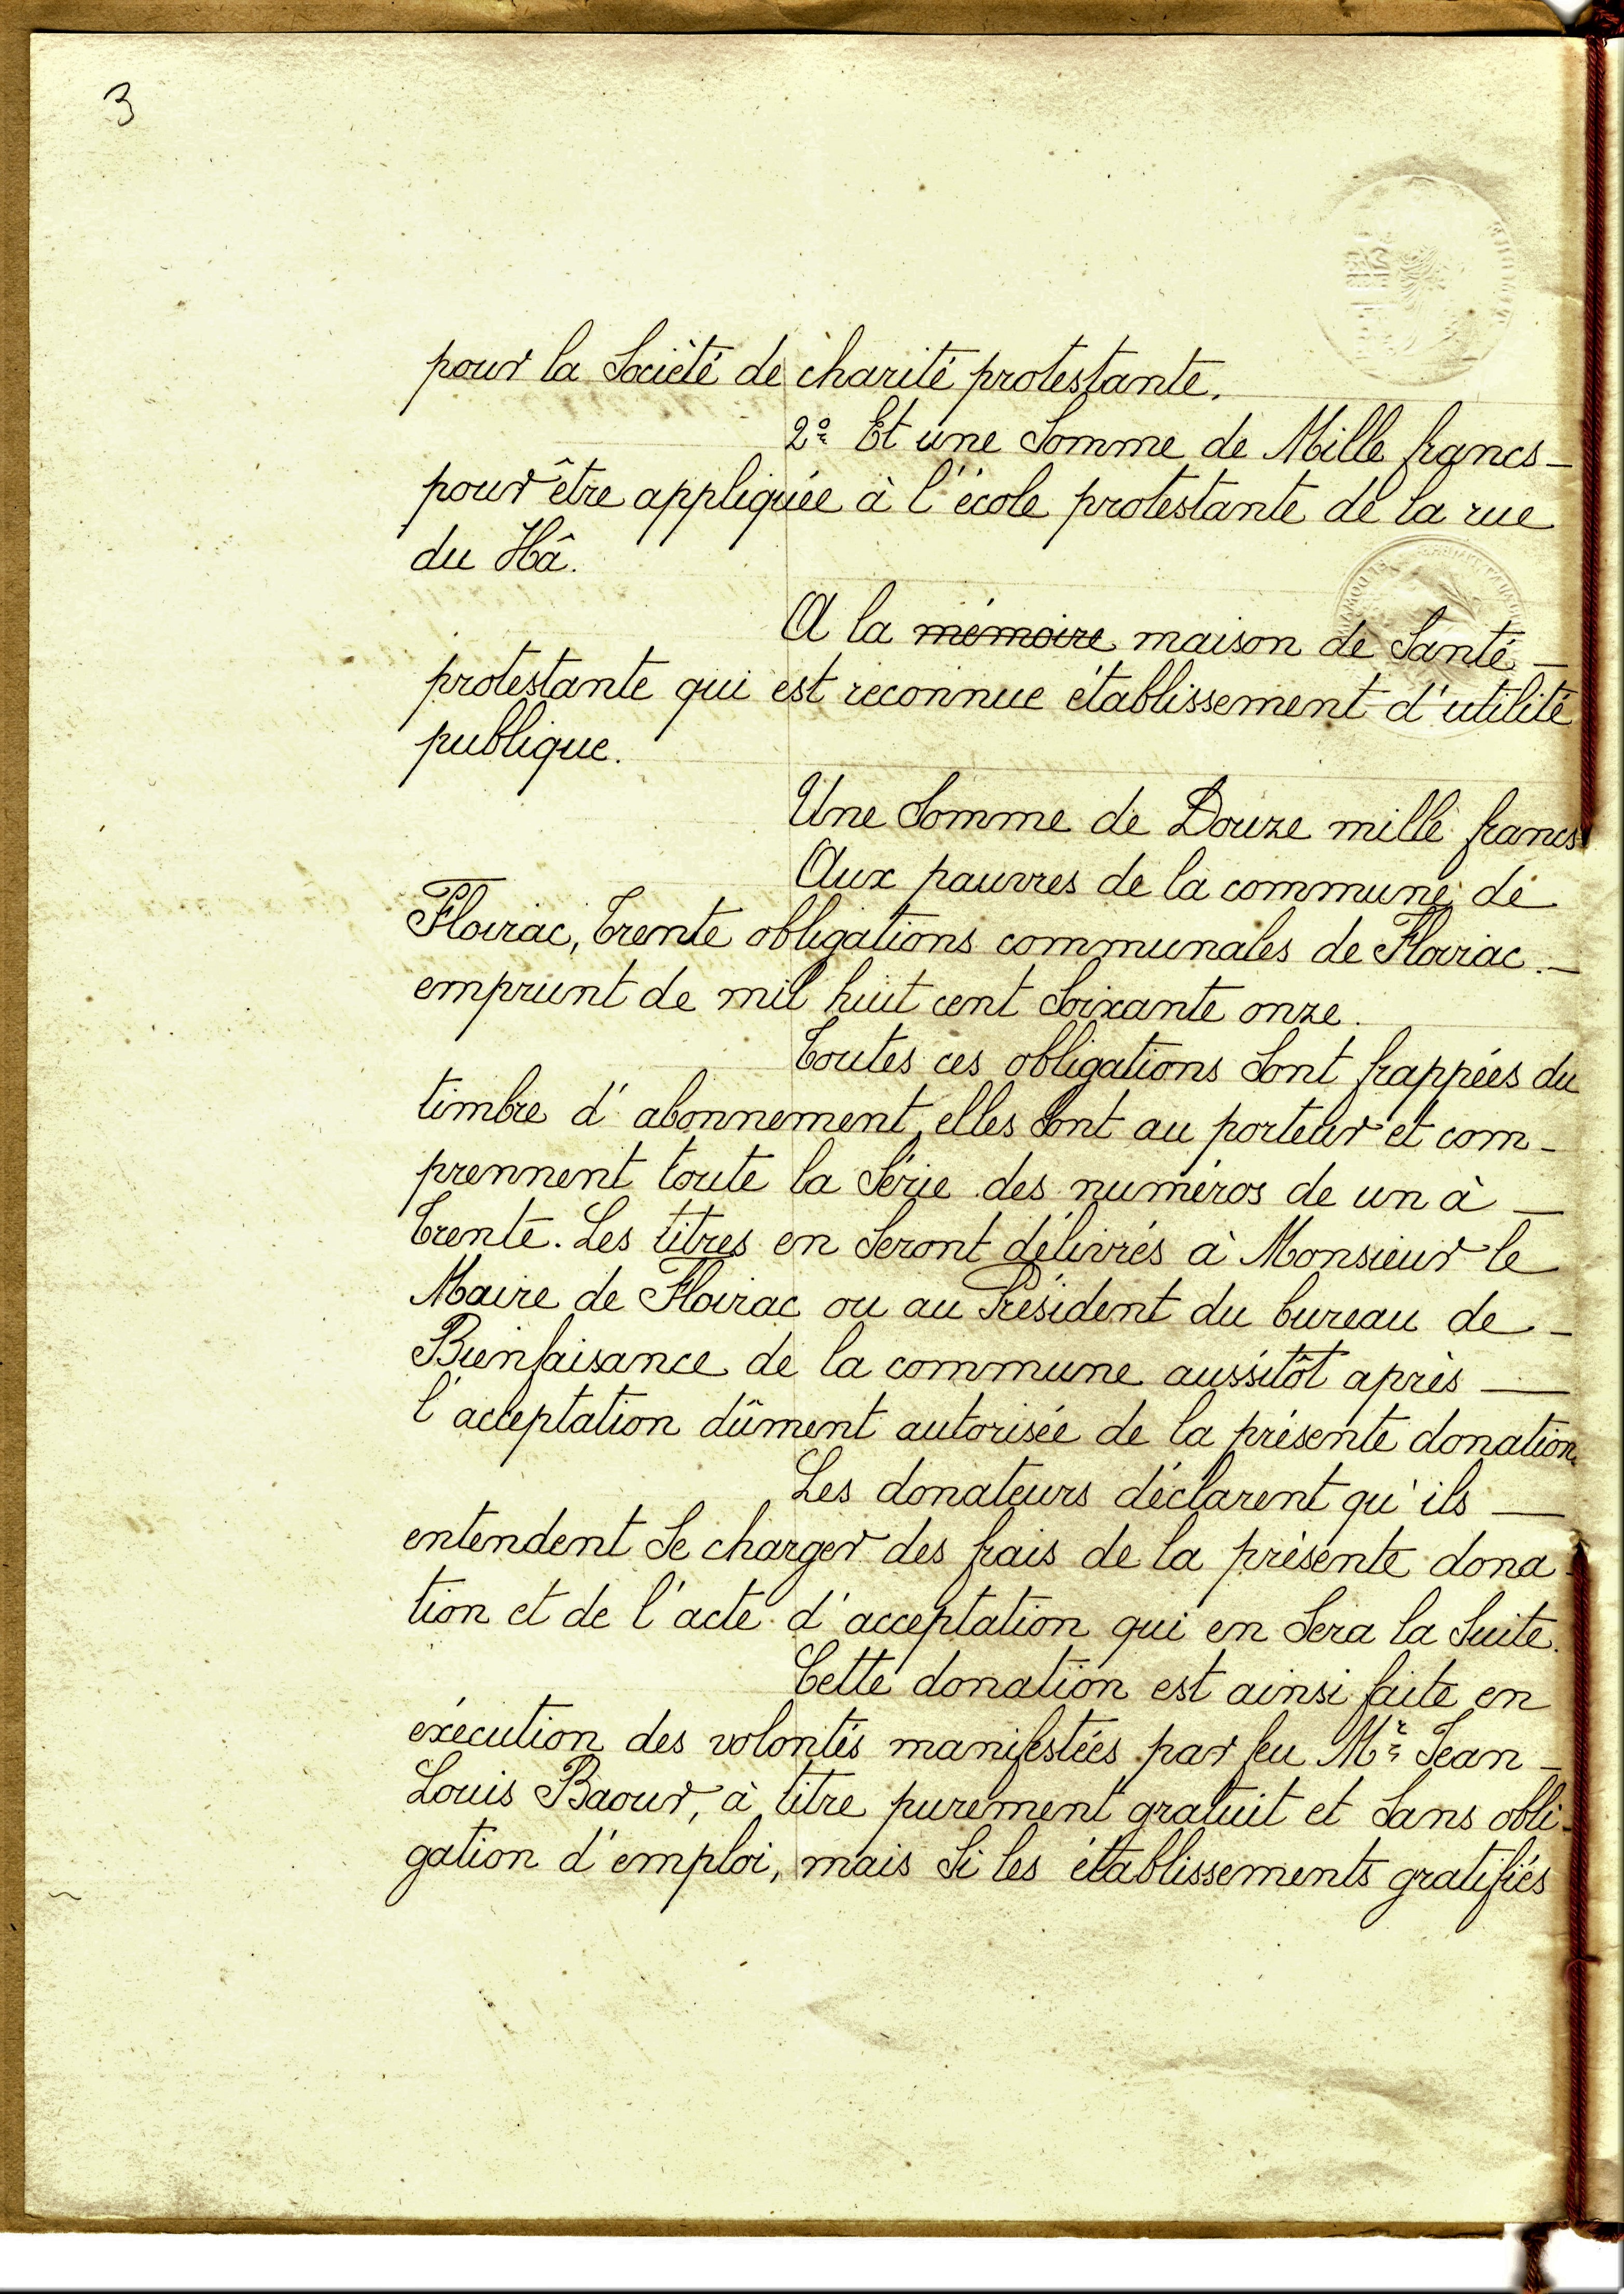 3
pour la Société de charité protestante.
2º Et une Somme de Mille francs —
pour être appliquée à l'école protestante de la rue
du Hâ.
A la mémoire maison de Santé —
protestante qui est reconnue établissement d'utilité
publique.
Une Somme de Douze mille francs
Aux pauvres de la commune de
Floirac, trente obligations communales de Floirac. —
emprunt de mil huit cent soixante onze.
Toutes ces obligations sont frappées du
timbre d'abonnement, elles sont au porteur et com-
prennent toute la Série des numéros de un à —
trente. Les titres en seront délivrés à Monsieur le
Maire de Floirac ou au Président du bureau de —
Bienfaisance de la commune aussitôt après —
l'acceptation dûment autorisée de la présente donation.
Les donateurs déclarent qu'ils —
entendent se charger des frais de la présente dona-
tion et de l'acte d'acceptation qui en sera la suite.
Cette donation est ainsi faite en
exécution des volontés manifestées par feu Mr Jean —
Louis Baour, à titre purement gratuit et sans obli-
gation d'emploi, mais si les établissements gratifiés